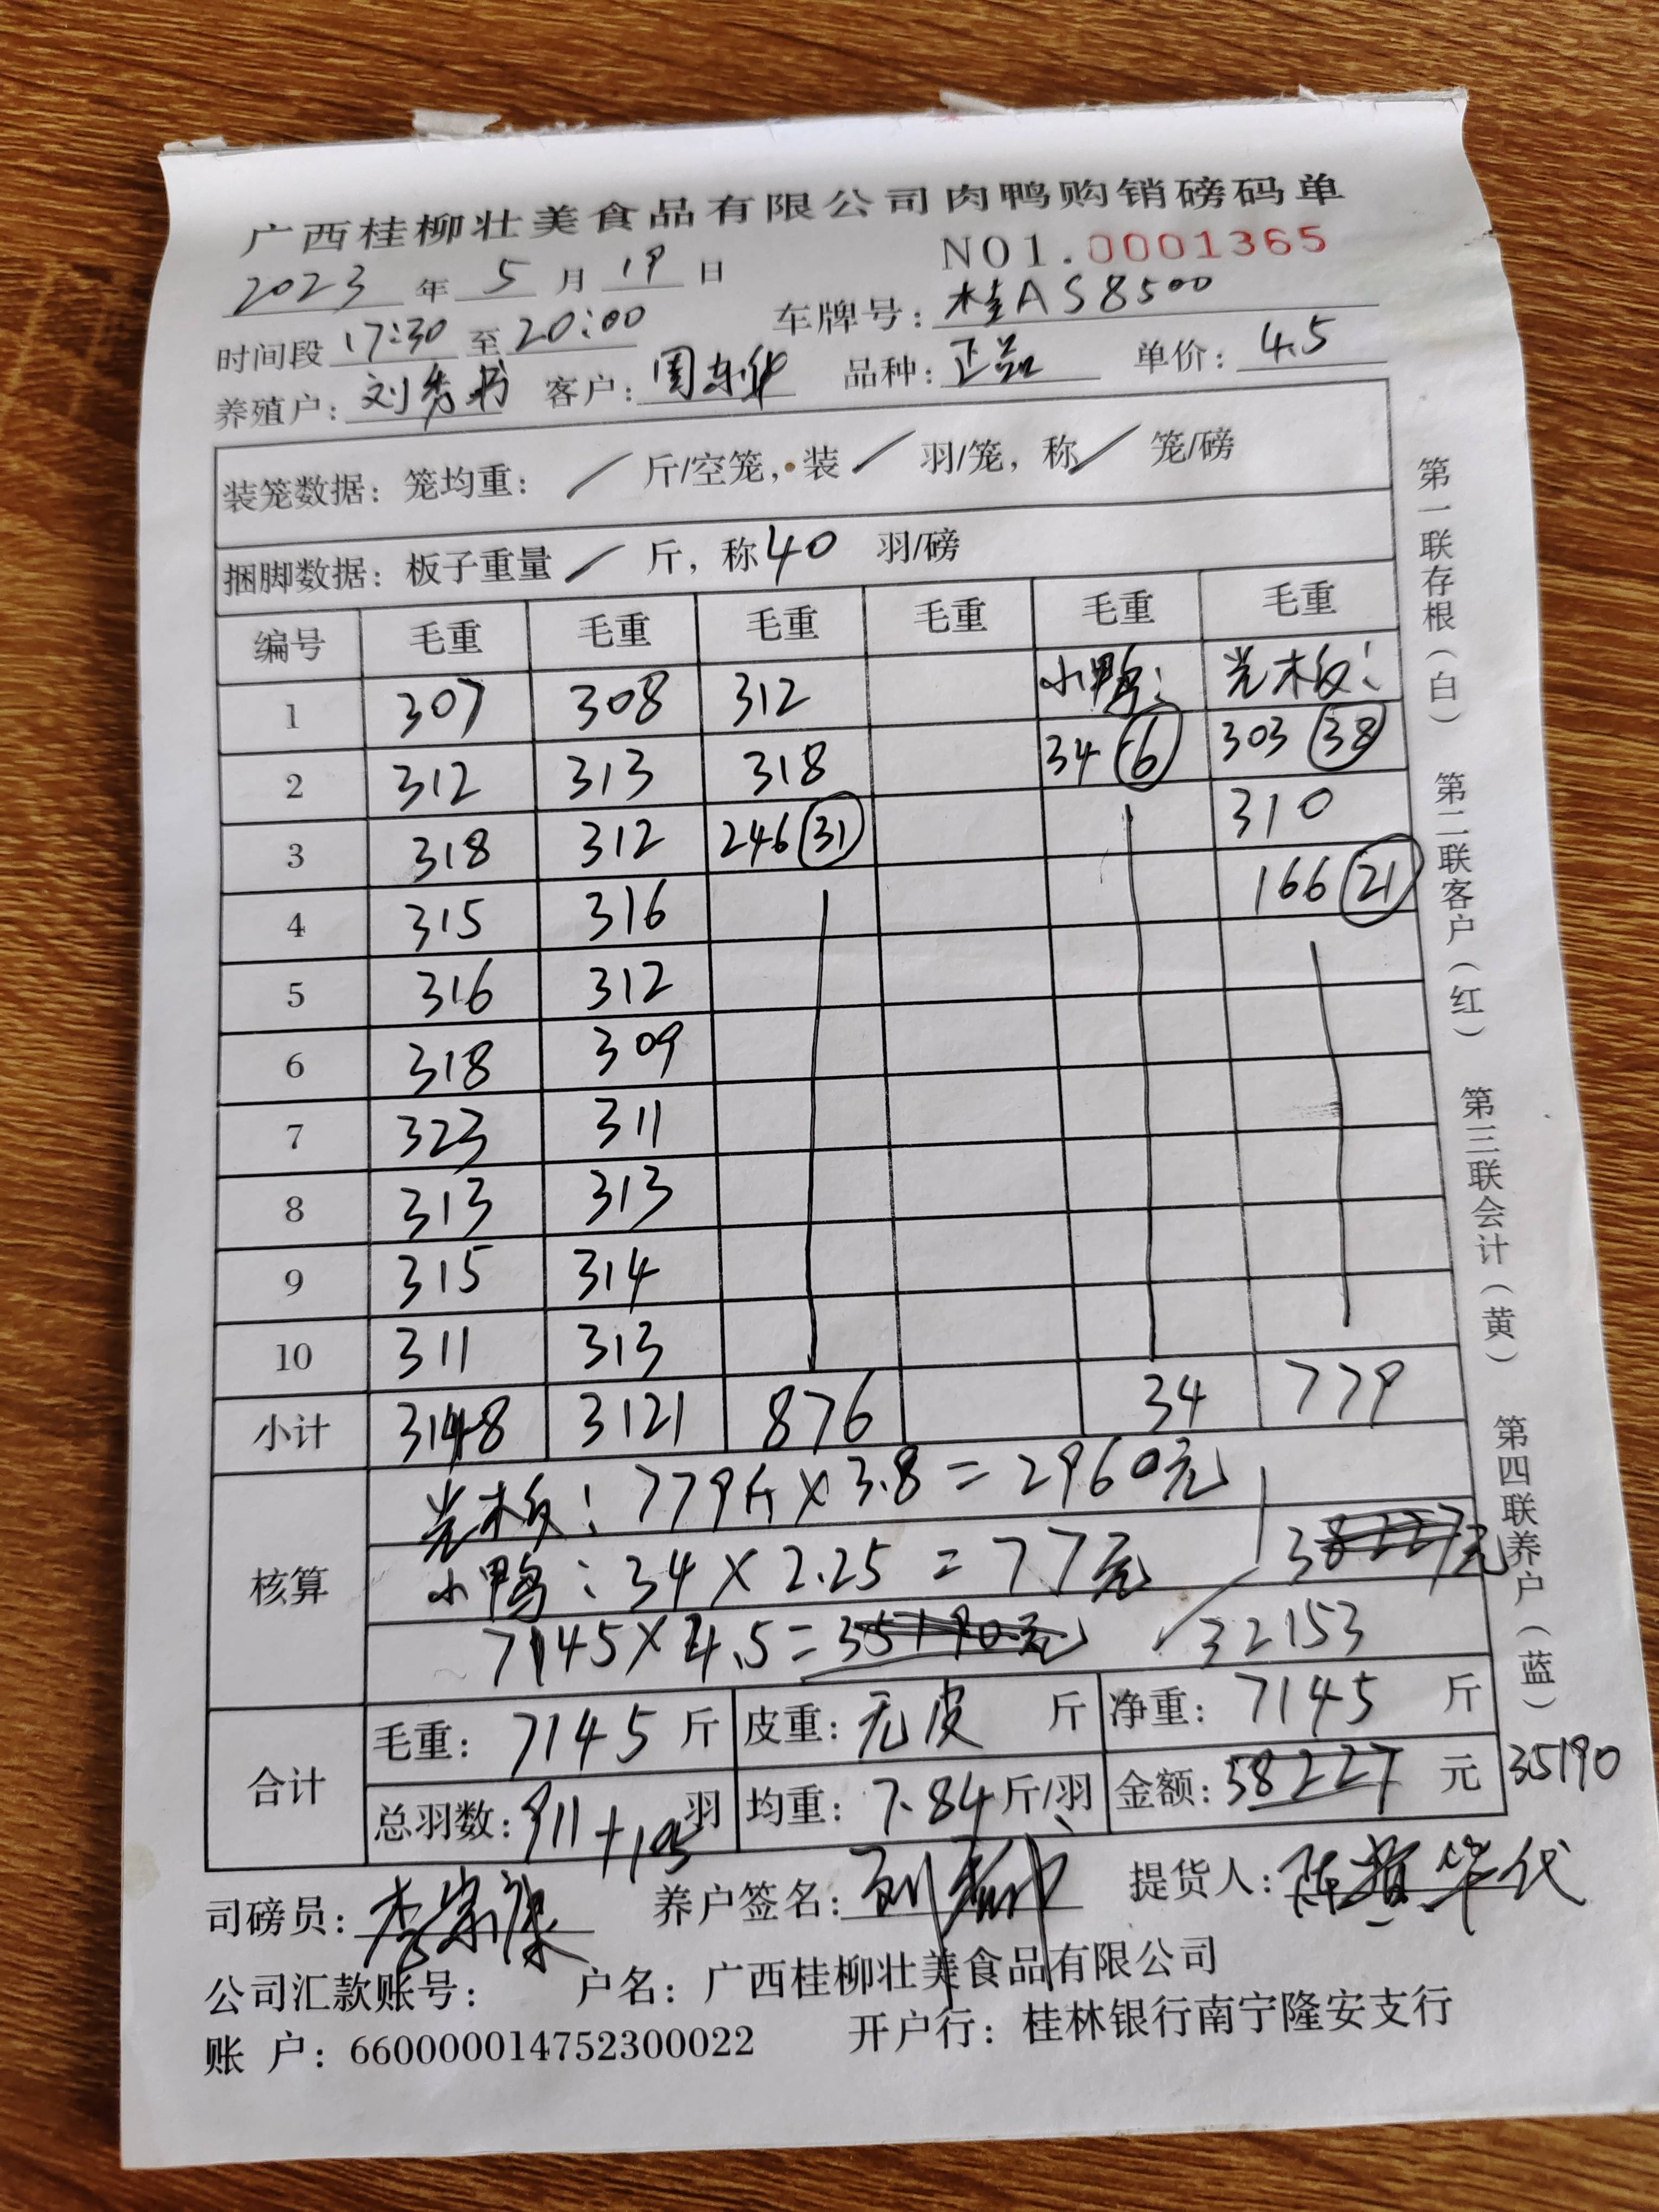 广西桂柳壮美食品有限公司肉鸭购销磅码单
2023 年 5 月 19 日 NO1.0001365
时间段 17:30 至 20:00 车牌号: 桂AS8500
养殖户: 刘秀 客户: 周东华 品种: 正品 单价: 4.5
装笼数据: 笼均重: / 斤/空笼, 装 / 羽/笼, 称 / 笼/磅
捆脚数据: 板子重量 / 斤, 称 40 羽/磅
编号 毛重 毛重 毛重 毛重 毛重 毛重
1 307 308 312 小鸭: 光木板:
2 312 313 318 34 6 303 38
3 318 312 246 31 310
4 315 316 166 21
5 316 312
6 318 309
7 323 311
8 313 313
9 315 314
10 311 313
小计 3148 3121 876 34 779
核算
光木板: 779斤×3.8=2960元
小鸭: 34×2.25=77元 38227元
7145×4.5=35190元 32153
合计
毛重: 7145 斤 皮重: 无皮 斤 净重: 7145 斤
总羽数: 911+105 羽 均重: 7.84 斤/羽 金额: 38227 元 35190
司磅员: 李宗 养户签名: 刘 提货人: 陈 华代
公司汇款账号: 户名: 广西桂柳壮美食品有限公司
账 户: 660000014752300022 开户行: 桂林银行南宁隆安支行
第一联存根(白) 第二联客户(红) 第三联会计(黄) 第四联养户(蓝)